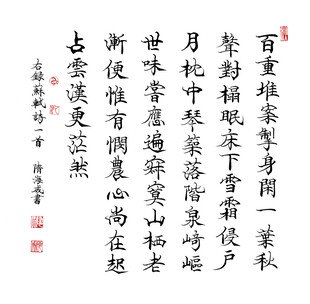 百重堆案掣身閒一葉秋
聲對榻眠床下雪霜侵戶
月枕中琴築落階泉崎嶇
世味嘗應遍寂寞山栖老
漸便惟有憫農心尚在起
占雲漢更茫然
右錄蘇軾詩一首
書